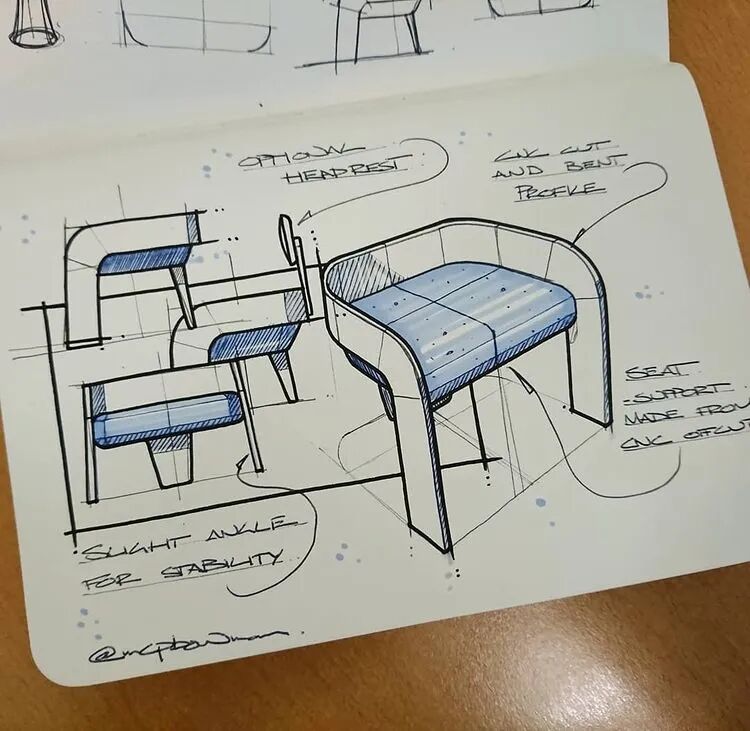 OPTIONAL
HEADREST
CNC CUT
AND BENT
PROFILE
SEAT
SUPPORT
MADE FROM
CNC OFFCUT
SLIGHT ANGLE
FOR STABILITY